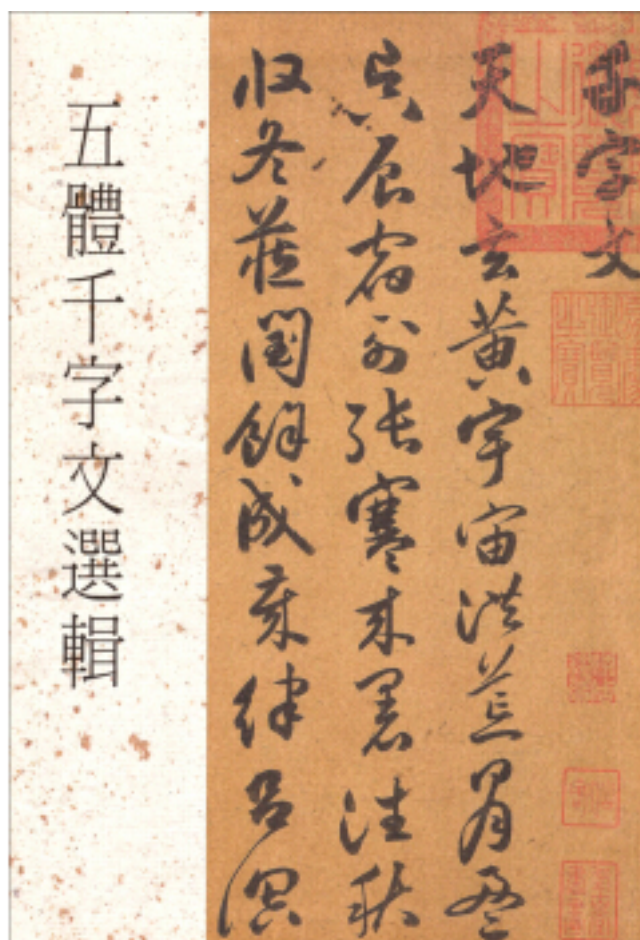 五體千字文選輯
千字文
天地玄黃宇宙洪荒日月盈
昃辰宿列張寒來暑往秋
收冬藏閏餘成歲律呂調